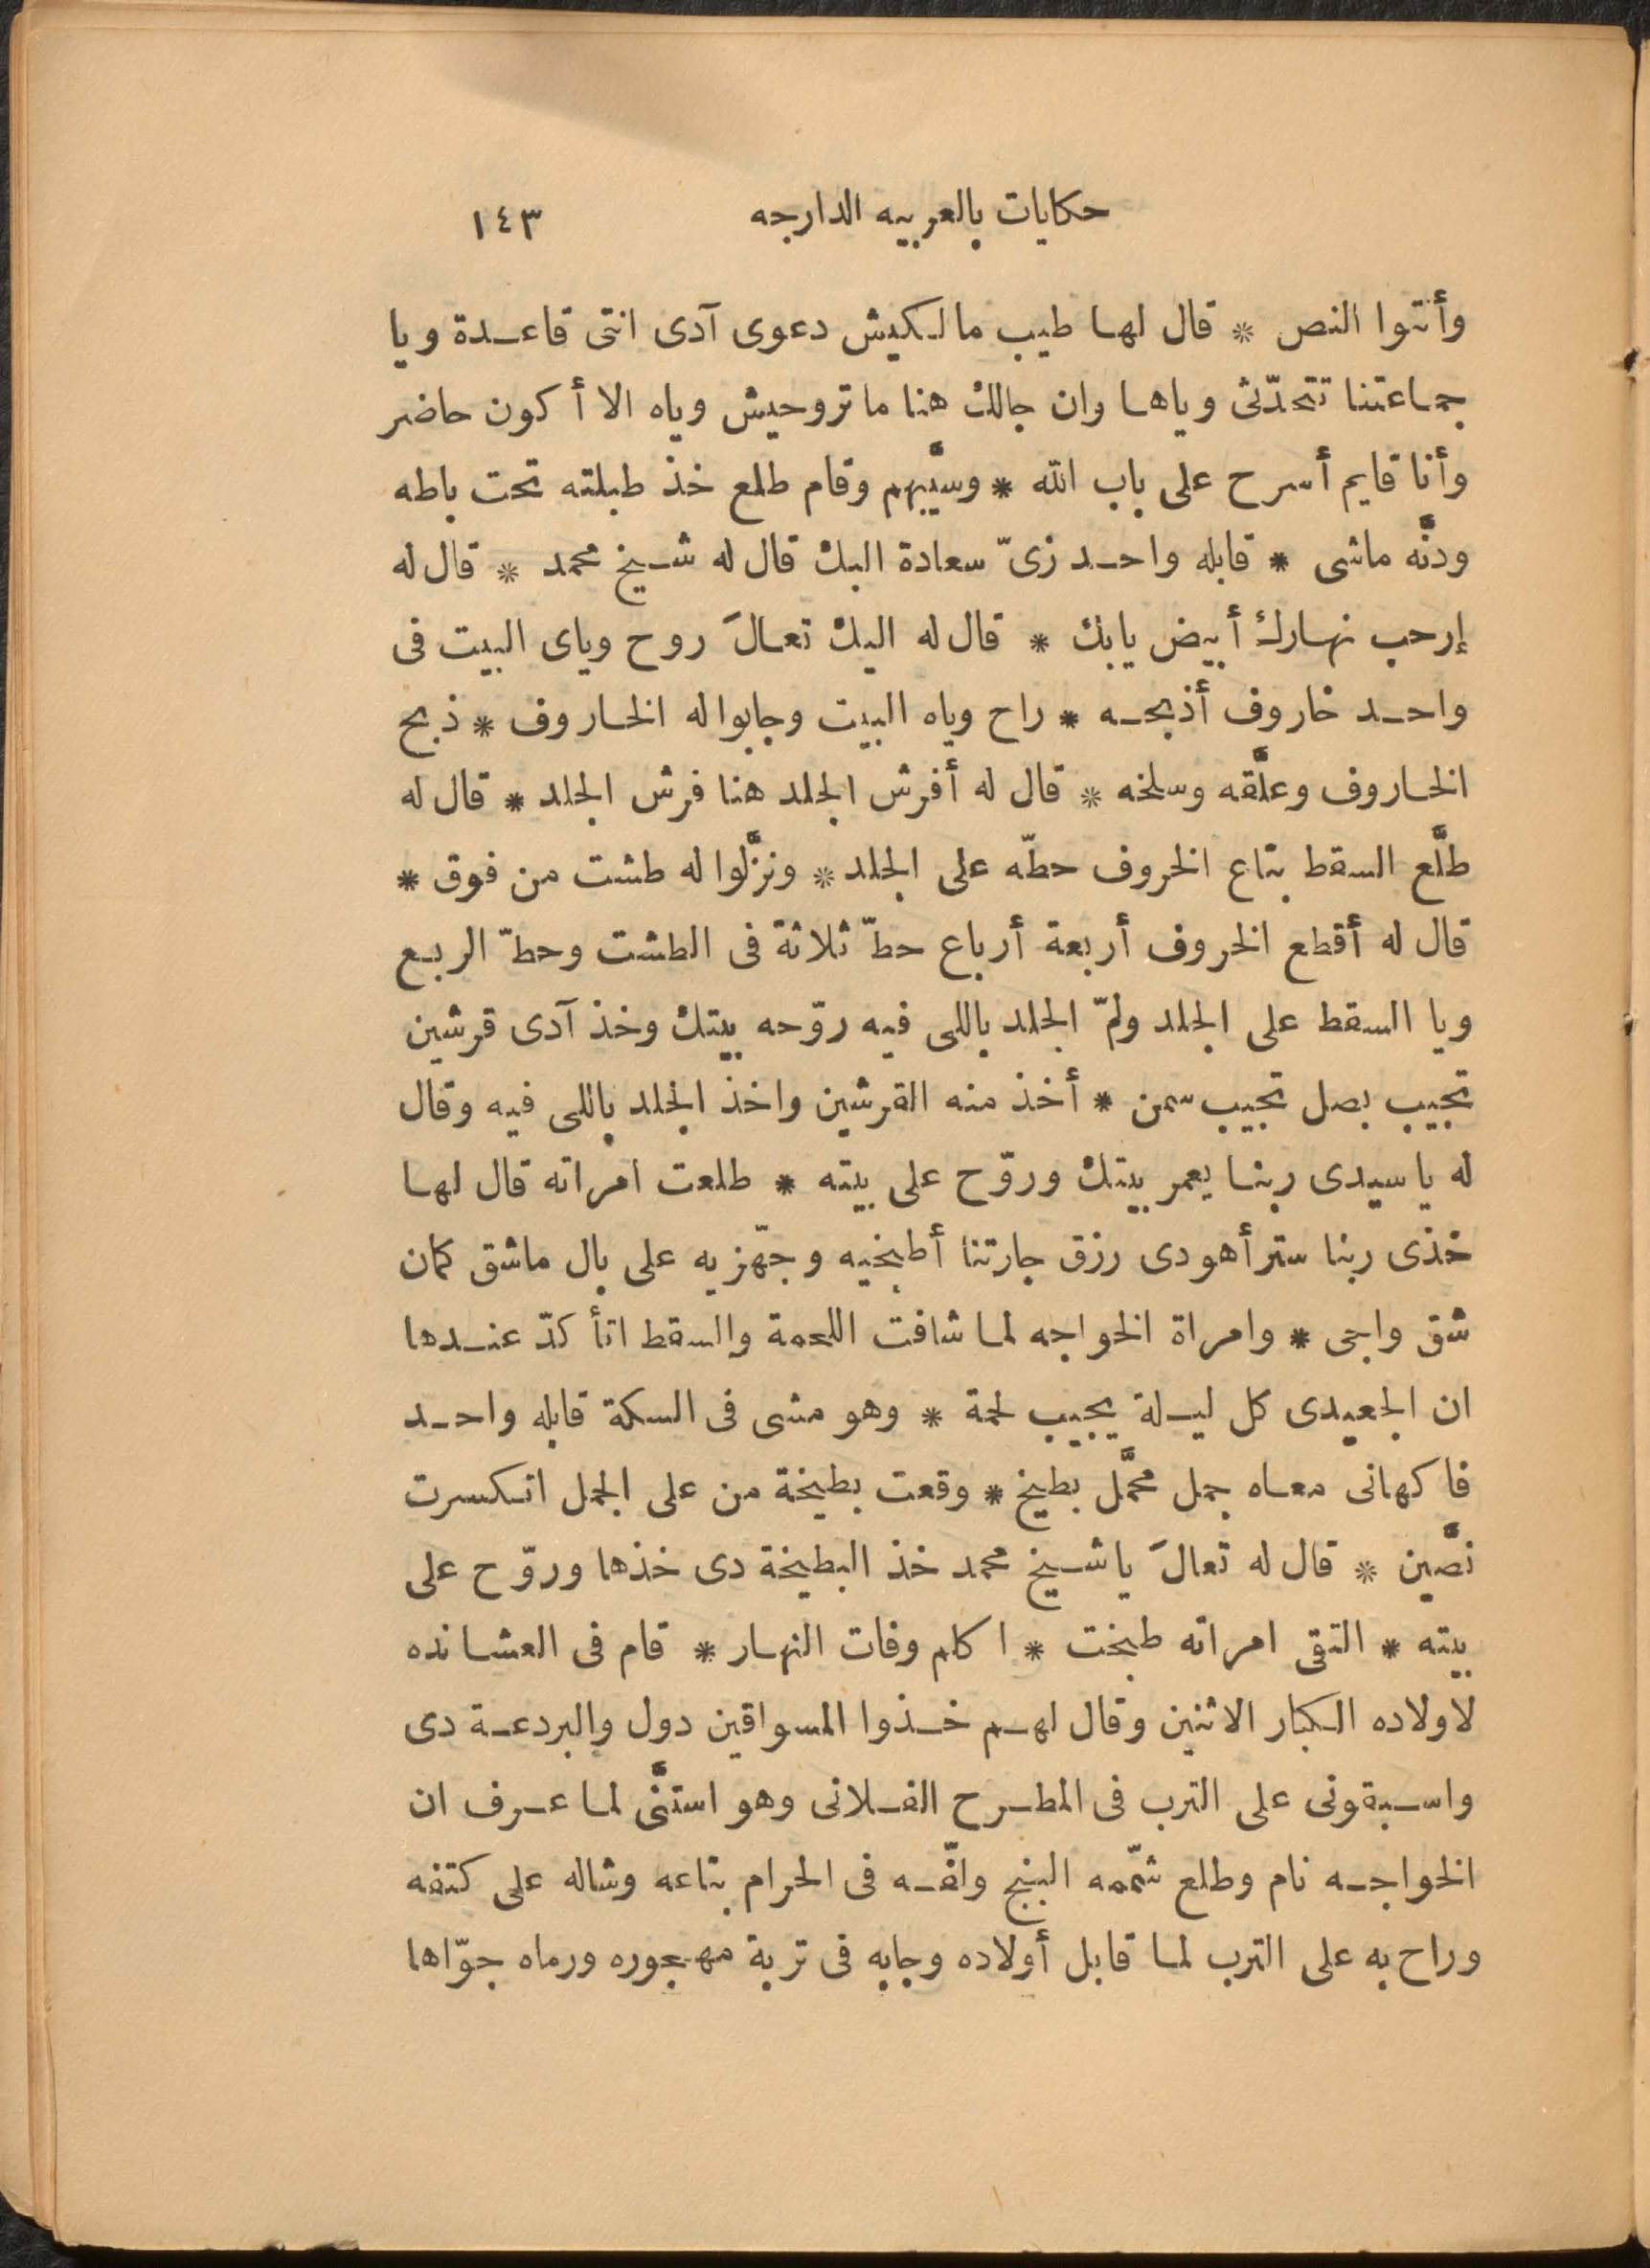 حكايات بالعربيه الدارجه ١٤٣
وأنتوا النص * قال لها طيب مالكيش دعوى آدى انتى قاعدة ويا
جماعتنا تتحدّثى وياها وان جالك هنا ما تروحيش وياه الا أكون حاضر
وأنا قايم أسرح على باب الله * وسيَّبهم وقام طلع خذ طبلته تحت باطه
ودنَّه ماشى * قابله واحد زىّ سعادة البك قال له شيخ محمد * قال له
إرحب نهارك أبيض يا بك * قال له البك تعالَ روح وياى البيت فى
واحد خاروف أذبحه * راح وياه البيت وجابوا له الخاروف * ذبح
الخاروف وعلَّقه وسلخه * قال له أفرش الجلد هنا فرش الجلد * قال له
طلَّع السقط بتاع الخروف حطّه على الجلد * ونزَّلوا له طشت من فوق *
قال له أقطع الخروف أربعة أرباع حطّ ثلاثة فى الطشت وحطّ الربع
ويا السقط على الجلد ولمّ الجلد باللى فيه روّحه بيتك وخذ آدى قرشين
تجيب بصل تجيب سمن * أخذ منه القرشين واخذ الجلد باللى فيه وقال
له يا سيدى ربنا يعمر بيتك وروّح على بيته * طلعت امراته قال لها
خذى ربنا ستر أهو دى رزق جارتنا أطبخيه وجهّزيه على بال ماشق كمان
شق واجى * وامراة الخواجه لما شافت اللحمة والسقط اتأكدّ عندها
ان الجعيدى كل ليلة يجيب لحمة * وهو مشى فى السكة قابله واحد
فاكهانى معاه جمل محمَّل بطيخ * وقعت بطيخة من على الجمل انكسرت
نصَّين * قال له تعالَ يا شيخ محمد خذ البطيخة دى خذها وروّح على
بيته * التقى امراته طبخت * اكلم وفات النهار * قام فى العشا نده
لاولاده الكبار الاثنين وقال لهم خذوا المسواقين دول والبردعة دى
واسبقونى على الترب فى المطرح الفلانى وهو استنَّى لما عرف ان
الخواجه نام وطلع شمّمه البنج ولفّه فى الحرام بتاعه وشاله على كتفه
وراح به على الترب لما قابل أولاده وجابه فى تربة مهجوره ورماه جوّاها